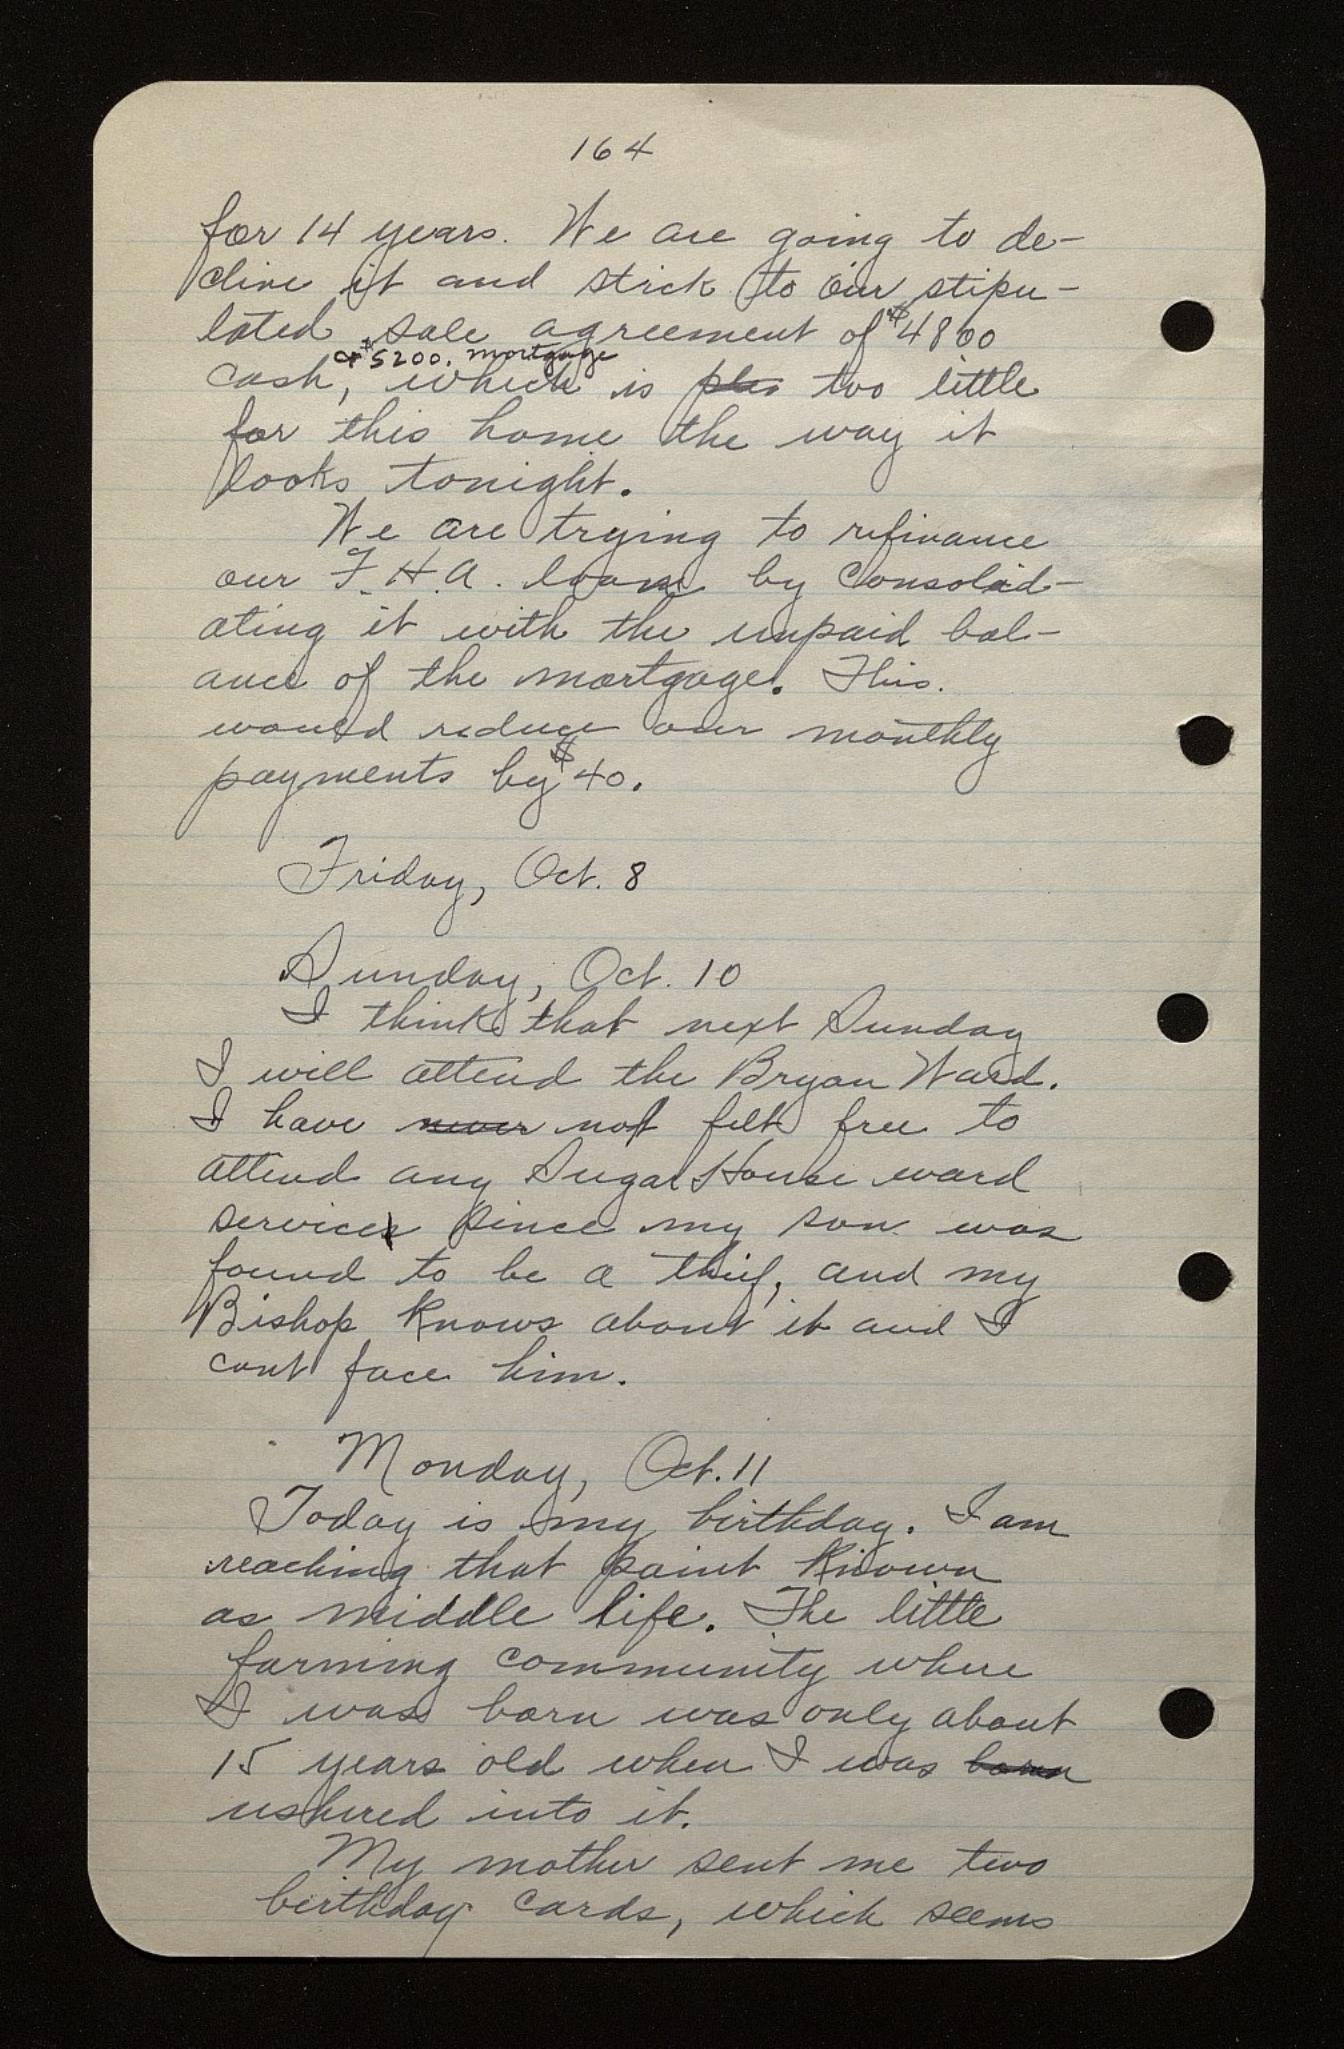 164
for 14 years. We are going to de-
cline it and stick to our stipu-
lated sale agreement of $4800
or $5200. mortgage
cash, which is too little
for this home the way it
looks tonight.
We are trying to refinance
our F.H.A. loan by consolid-
ating it with the unpaid bal-
ance of the mortgage. This
would reduce our monthly
payments by $40.
Friday, Oct. 8
Sunday, Oct. 10
I think that next Sunday
I will attend the Bryan Ward.
I have never not felt free to
attend any Sugar House ward
services since my son was
found to be a thief, and my
Bishop knows about it and I
cant face him.
Monday, Oct. 11
Today is my birthday. I am
reaching that point known
as middle life. The little
farming community where
I was born was only about
15 years old when I was born
ushered into it.
My mother sent me two
birthday cards, which seems